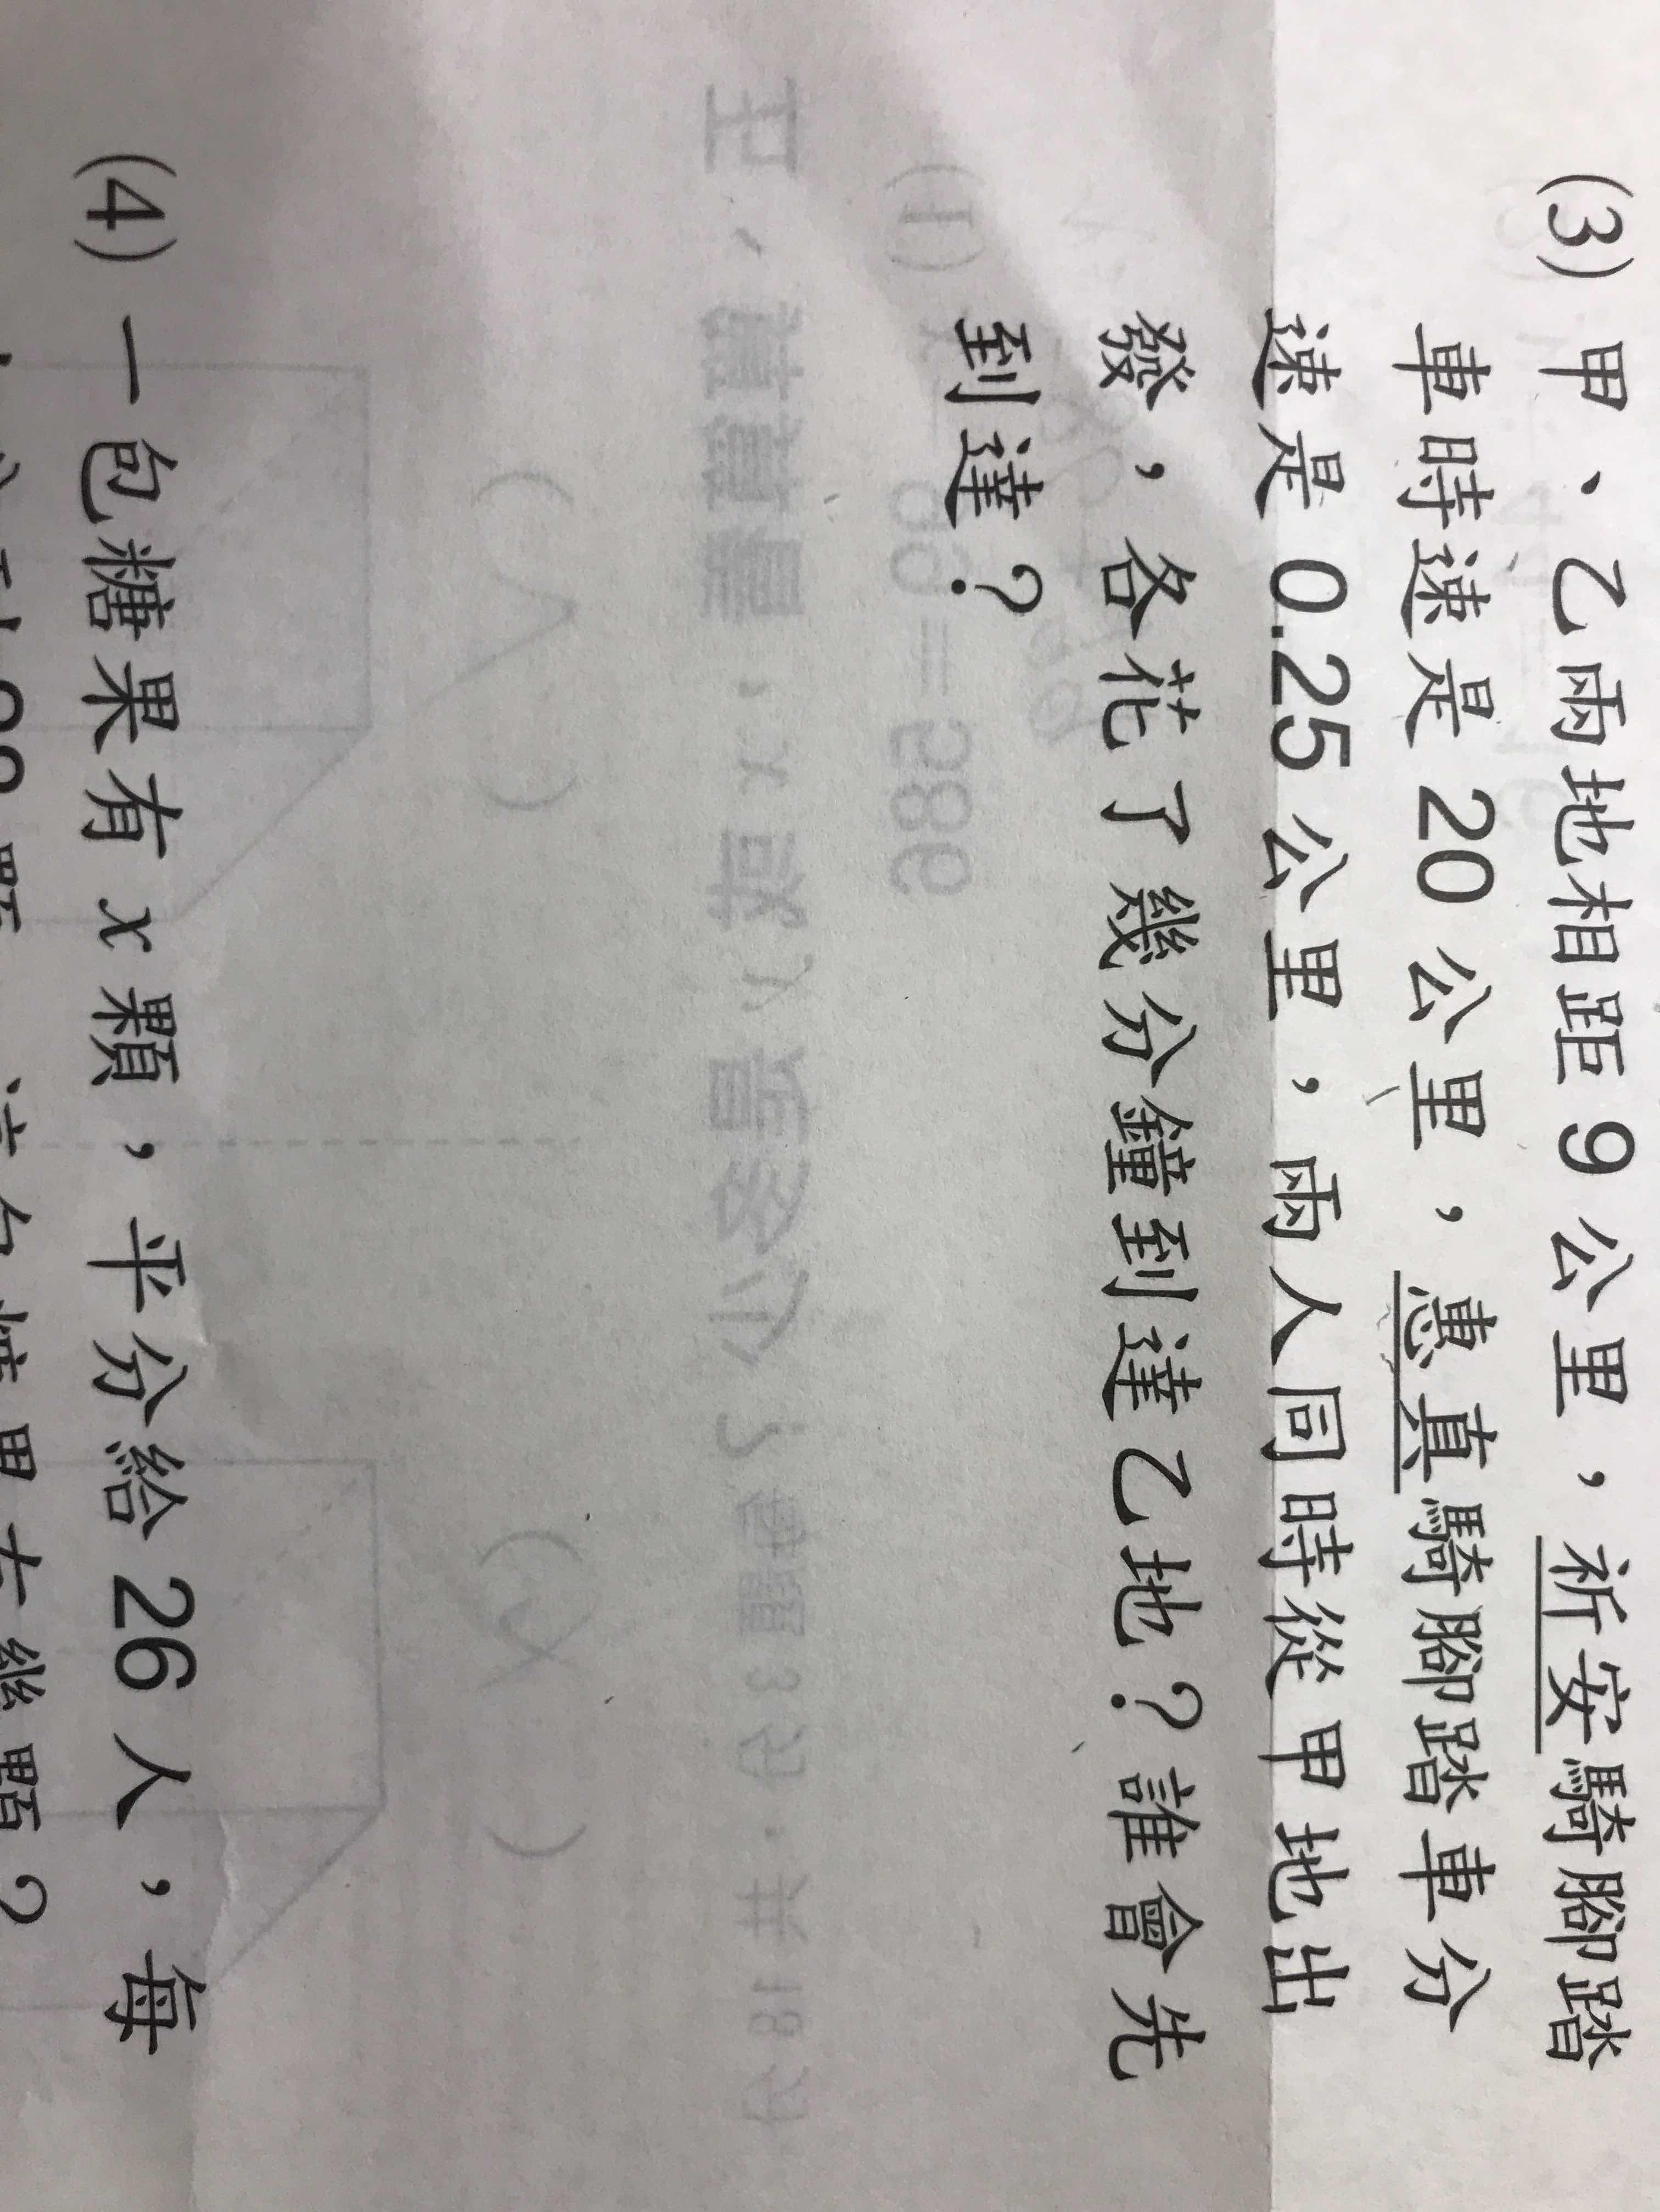 (3) 甲、乙兩地相距 9 公里，祈安騎腳踏
車時速是 20 公里，惠真騎腳踏車分
速是 0.25 公里，兩人同時從甲地出
發，各花了幾分鐘到達乙地？誰會先
到達？
(4) 一包糖果有 x 顆，平分給 26 人，每